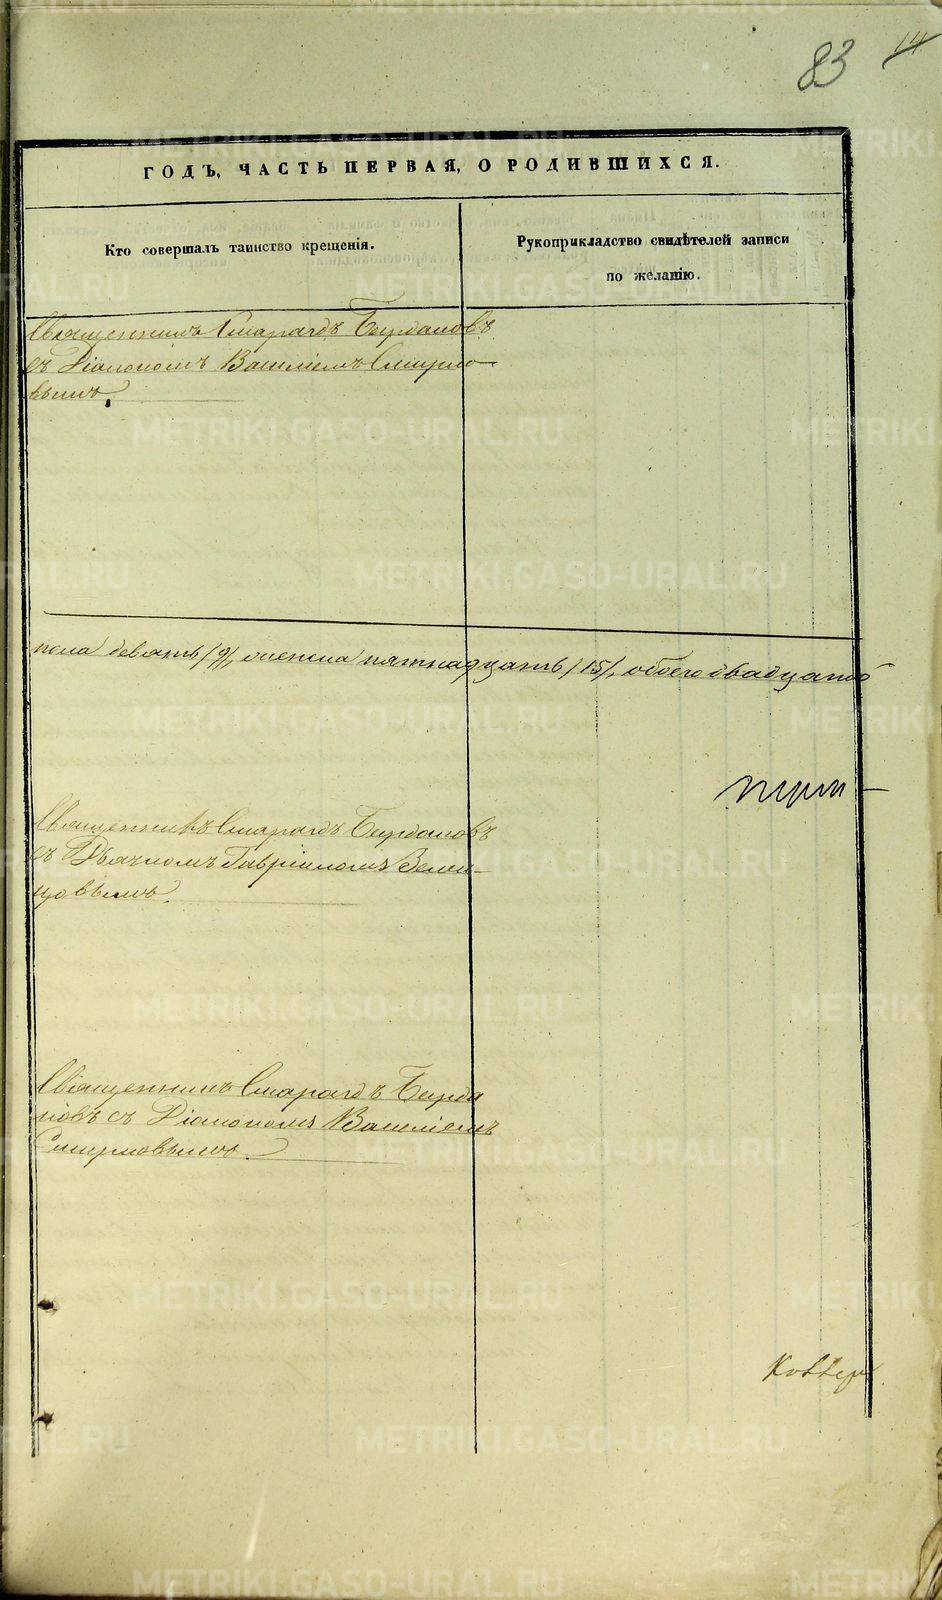 83 14
ГОДЪ, ЧАСТЬ ПЕРВАЯ, О РОДИВШИХСЯ.
Кто совершалъ таинство крещенія.
Рукоприкладство свидѣтелей записи
по желанію.
Священникъ Смарагдъ Бурдаковъ
съ Діакономъ Василіемъ Смирно-
вымъ.
пола девять /9/, женска пятнадцать /15/, обоего двадцать
Священникъ Смарагдъ Бурдаковъ
съ Дьячкомъ Гавріиломъ
цовымъ.
Священникъ Смарагдъ Бурда
ковъ съ Діакономъ Василіемъ
Смирновымъ.
METRIKI.GASO-URAL.RU